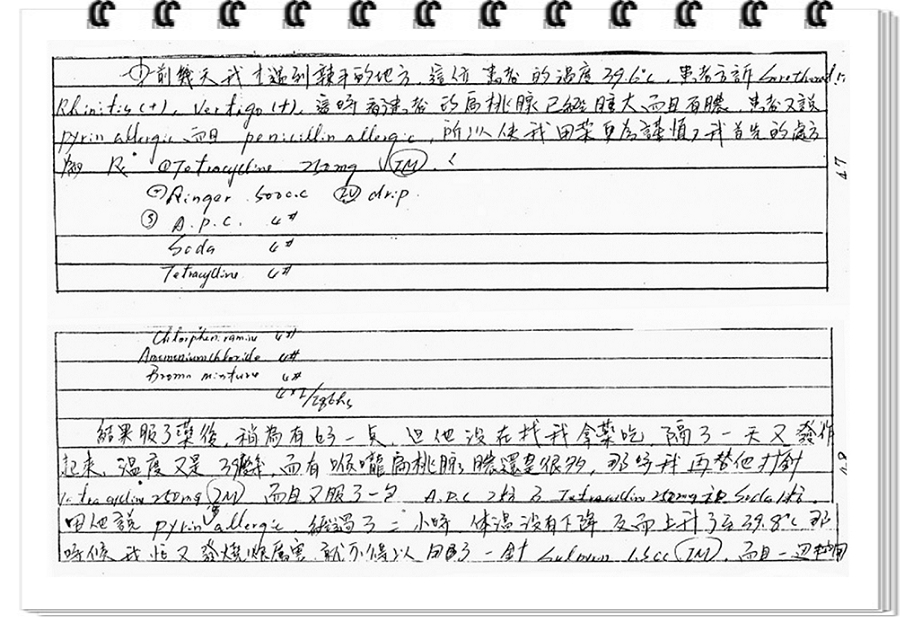 ①前幾天我才遇到棘手的地方,這位患者的溫度39.6°C,患者主訴 Sorethroat
Rhinitis(+), Vertigo(+), 這時看患者的扁桃腺已經腫大而且有膿,患者又說
pyrin allergic 而且 penicillin allergic, 所以使我用藥更為謹慎,我首先的處方
Rx ①Tetracycline 250mg (IM)
47
②Ringer 500c.c (IV) drip.
③ A.P.C. 4#
Soda 4#
Tetracycline 4#
Chlorpheniramine 4#
Ammonium chloride 4#
Bromo mixture 4#
結果服了藥後,稍為有好一點,但他沒在找我拿藥吃,隔了一天又發作
起來,溫度又是39 而有喉嚨扁桃腺膿還是很多,那時我再替他打針
48
Tetracyclin 250mg (IM) 而且又服了一包 A.P.C 2 Tetracyclin 250mg Soda
他說 pyrin allergic, 經過了二小時 體溫沒有下降 反而上升了至39.8°C 那
時候我怕又發燒 厲害 就不得以 了一針 (IM), 而且一邊